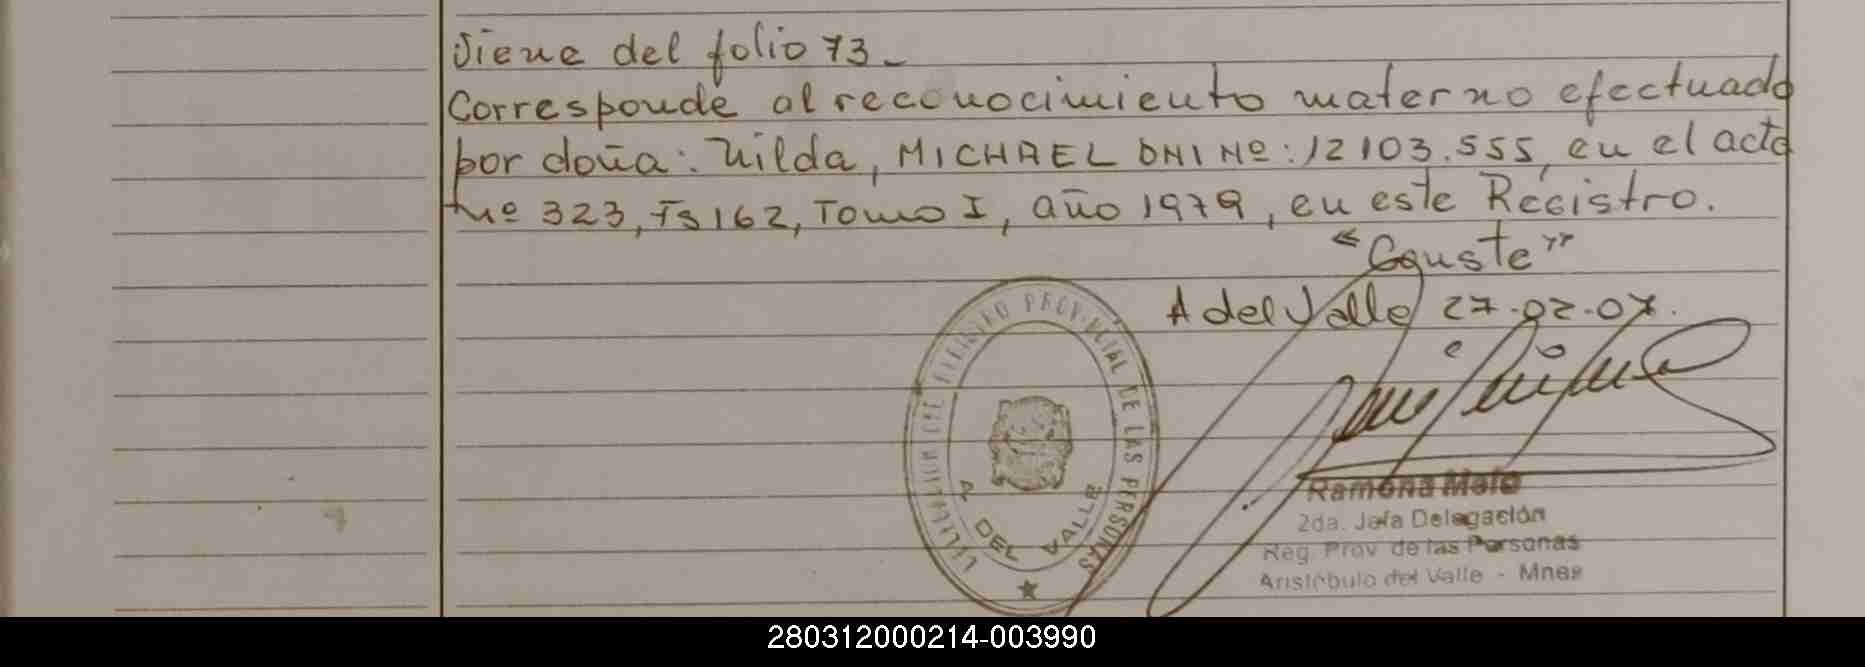 Viene del folio 73_
Corresponde al reconocimiento materno efectuado
por doña: Nilda, MICHAEL DNI Nº: 12103.555, en el acta
Nº 323, Fs 162, Tomo I, año 1979, en este Registro.
"Conste"
A del Valle 27-02-07.
DELEGACION DEL REGISTRO PROVINCIAL DE LAS PERSONAS
A. DEL VALLE
Ramona Melo
2da. Jefa Delegación
Reg. Prov. de las Personas
Aristóbulo del Valle - Mnes
280312000214-003990